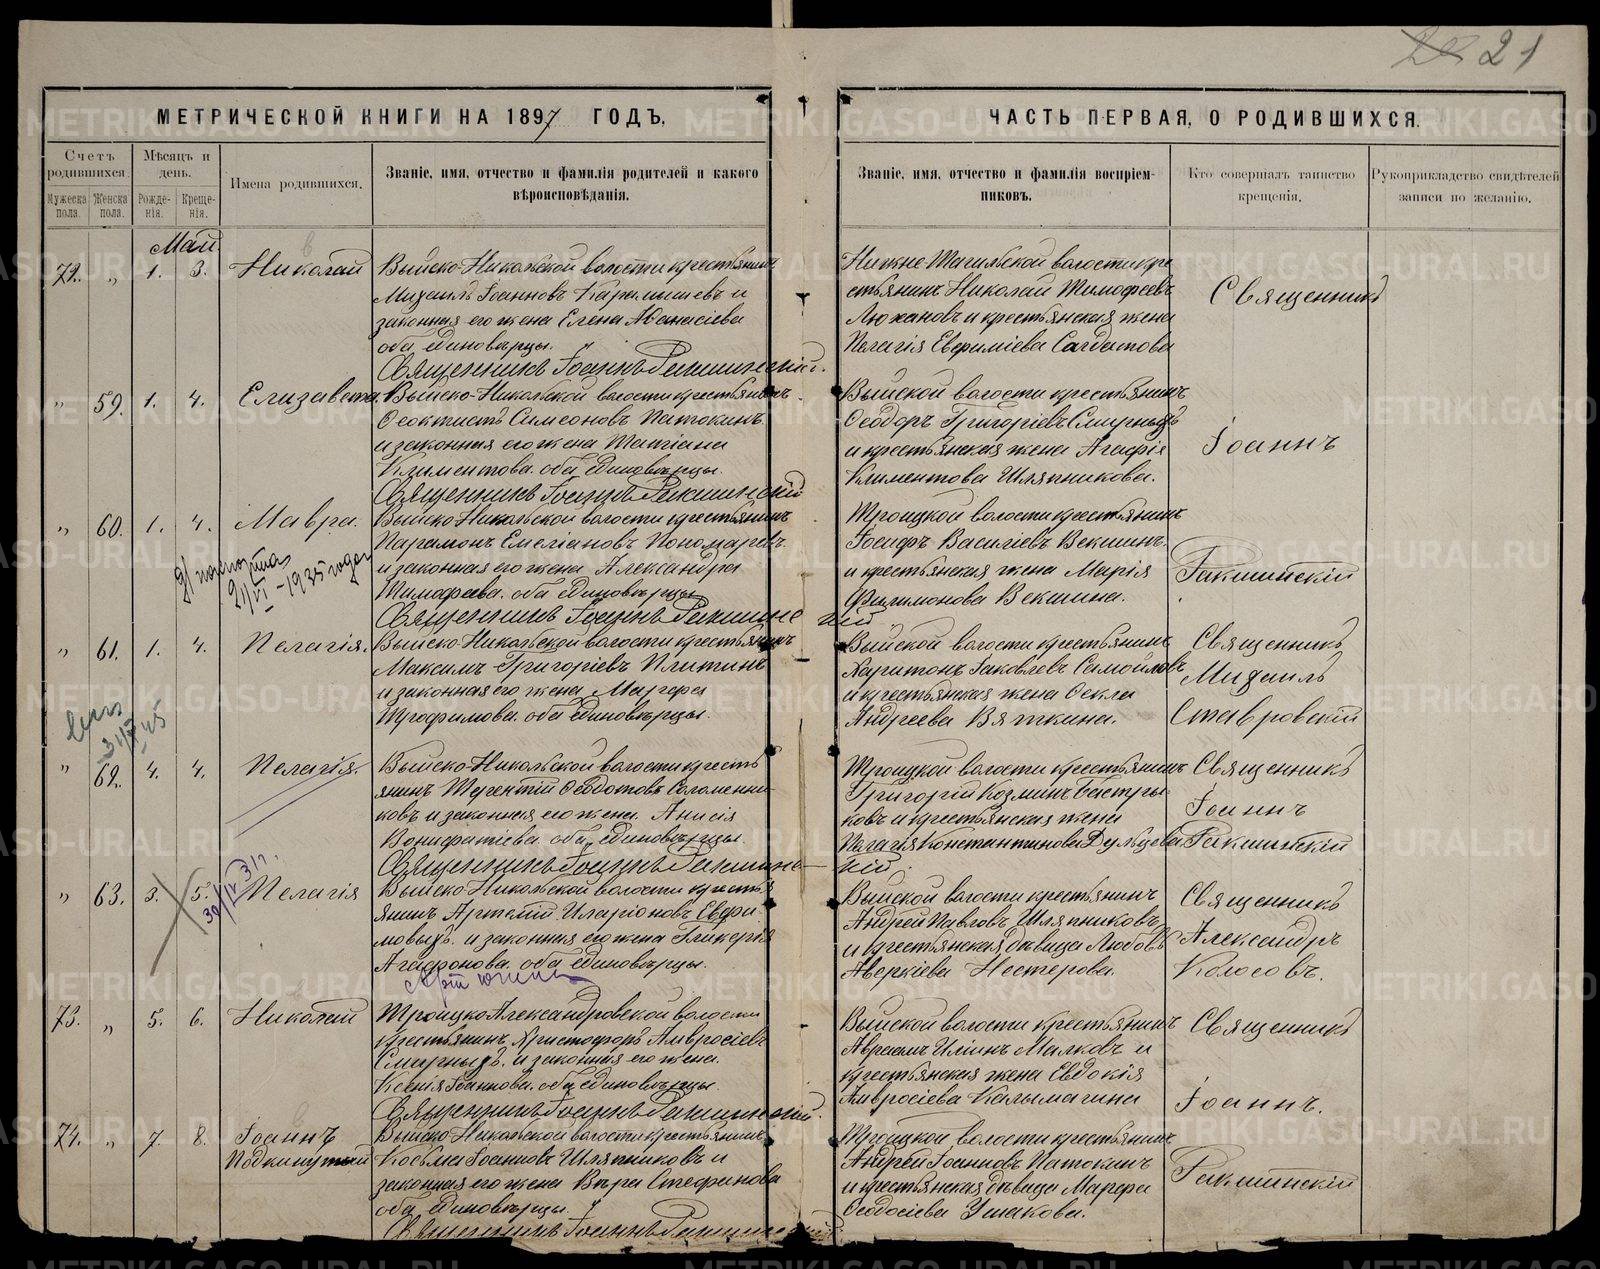 21
МЕТРИЧЕСКОЙ КНИГИ НА 1897 ГОДЪ,
ЧАСТЬ ПЕРВАЯ, О РОДИВШИХСЯ.
Счетъ родившихся.
Мѣсяцъ и день.
Имена родившихся.
Званіе, имя, отчество и фамилія родителей и какого
вѣроисповѣданія.
Званіе, имя, отчество и фамилія воспріем-
никовъ.
Кто совершалъ таинство
крещенія.
Рукоприкладство свидѣтелей
записи по желанію.
Мужеска пола.
Женска пола.
Рожде-
нія.
Креще-
нія.
Май
72. " 1. 3. Николай
Выйско-Николаской волости крестьянинъ
Михаилъ Іоанновъ Карамышевъ и
законная его жена Елена Аѳанасіева
оба единовѣрцы.
Священникъ Іоаннъ Ракшинскій.
Нижне-Тагильской волости кре
стьянинъ Николай Тимофеевъ
Люхановъ и крестьянская жена
Пелагія Евфиміева Салдатова
Священникъ
" 59. 1. 4. Елизавета
Выйско-Николской волости крестьянинъ
Ѳеоктистъ Симеоновъ Патокинъ
и законная его жена Татіана
Климентова. оба единовѣрцы.
Священникъ Іоаннъ Ракшинскій
Выйской волости крестьянинъ
Ѳеодоръ Григоріевъ Смирныхъ
и крестьянская жена Агафія
Климентова Шляпникова.
Іоаннъ
" 60. 1. 4. Мавра.
21/VI - 1935 года
Выйско-Николской волости крестьянинъ
Парамонъ Емеліановъ Пономаревъ
и законная его жена Александра
Тимофеева. оба единовѣрцы
Священникъ Іоаннъ Ракшинс
кій
Троицкой волости крестьянинъ
Іосифъ Василіевъ Векшинъ.
и крестьянская жена Марія
Филимонова Векшина.
Ракшинскій
" 61. 1. 4. Пелагія.
Выйско-Николской волости крестьянинъ
Максимъ Григоріевъ Плитинъ
и законная его жена Марфа
Трофимова. оба единовѣрцы.
Выйской волости крестьянинъ
Харитонъ Іаковлевъ Самойловъ
и крестьянская жена Ѳекла
Андреева Вяткина.
Священникъ
Михаилъ
Ставровскій
" 62. 4. 4. Пелагія.
Выйско-Николской волости кресть
янинъ Терентій Ѳеодотовъ Соломенни-
ковъ и законная его жена Анисія
Вонифатіева. оба единовѣрцы.
Священникъ Іоаннъ Ракшинс
кій
Троицкой волости крестьянинъ
Григорій Козминъ Бастры
ковъ и крестьянская жена
Пелагія Константинова Дульцева
Священникъ
Іоаннъ
Ракшинскій
" 63. 3. 5. Пелагія
Выйско-Николской волости кресть
янинъ Артемій Иларіоновъ Евфи-
мовыхъ. и законная его жена Гликерія
Агафонова. оба единовѣрцы.
Выйской волости крестьянинъ
Андрей Павловъ Шляпниковъ
и крестьянская дѣвица Любовь
Аверкіева Нестерова.
Священникъ
Александръ
Колосовъ.
73. " 5. 6. Николай
Троицко-Александровской волости
крестьянинъ Христофоръ Амвросіевъ
Смирныхъ. и законная его жена.
Ксенія Іоаннова. оба единовѣрцы.
Священникъ Іоаннъ Ракшинскій.
Выйской волости крестьянинъ
Авраамъ Иліинъ Малковъ и
крестьянская жена Евдокія
Амвросіева Калымагина
Священникъ
Іоаннъ.
74. " 7. 8. Іоаннъ
Подкинутый
Выйско-Николской волости крестьянинъ
Косьма Іоанновъ Шляпниковъ и
законная его жена Вѣра Стефанова
оба единовѣрцы.
Священникъ Іоаннъ Ракшинскій
Троицкой волости крестьянинъ
Андрей Іоанновъ Патокинъ
и крестьянская дѣвица Марфа
Ѳеодосіева Ушакова.
Ракшинскій
METRIKI.GASO-URAL.RU